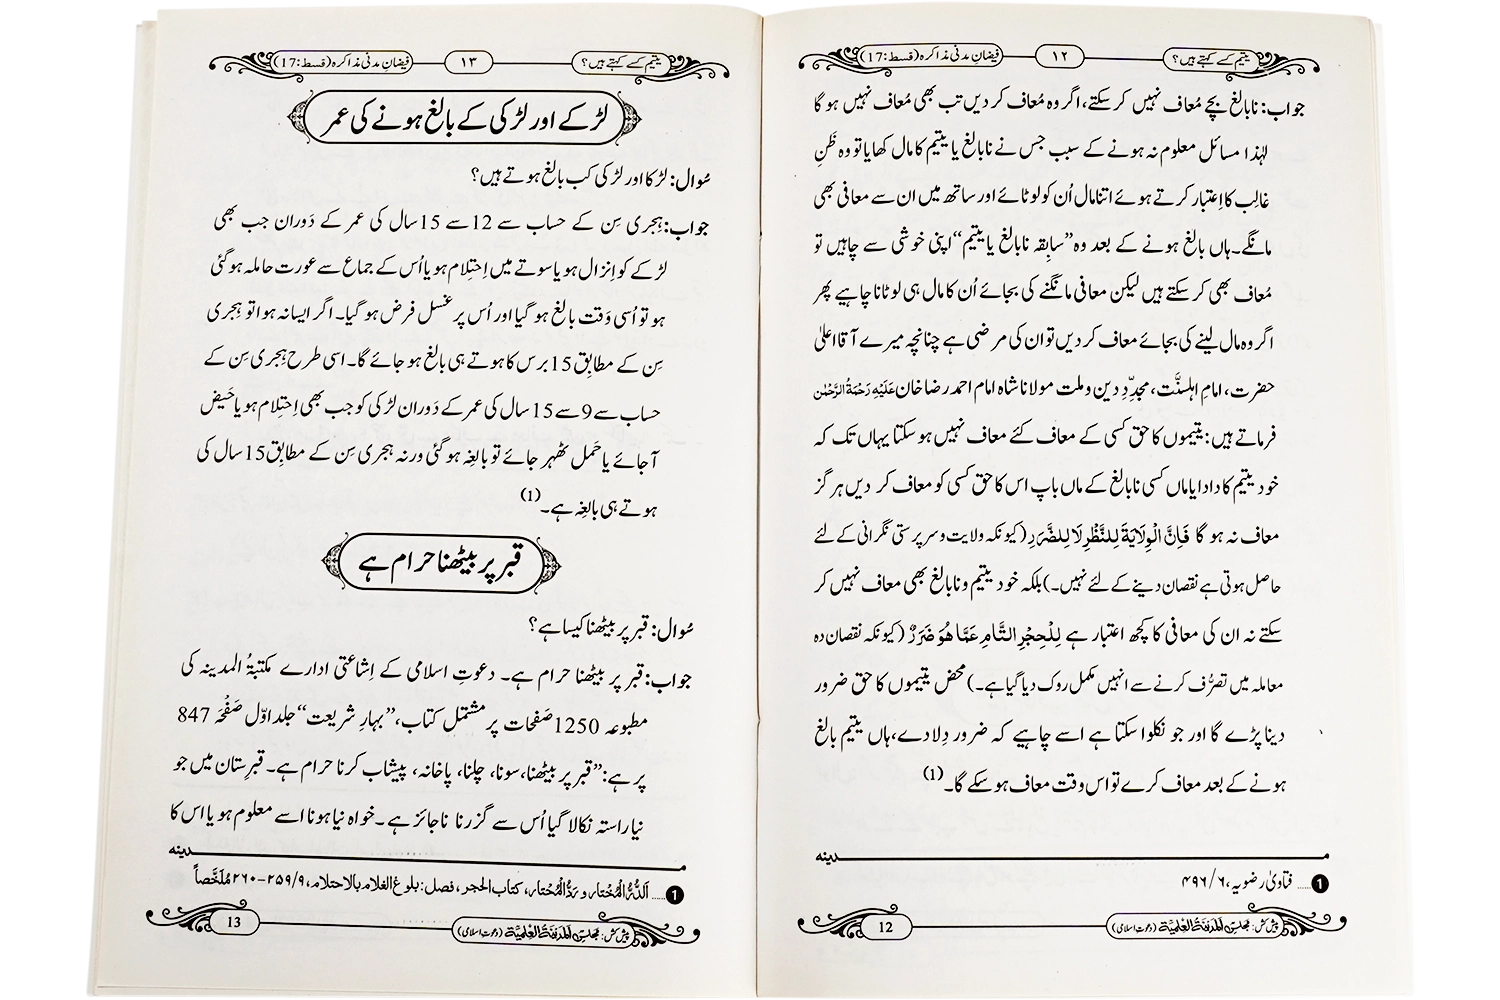 یتیم کسے کہتے ہیں؟
۱۲
فیضانِ مدنی مذاکرہ (قسط:17)
جواب: نابالغ بچے مُعاف نہیں کر سکتے، اگر وہ مُعاف کر دیں تب بھی مُعاف نہیں ہو گا
لہٰذا مسائل معلوم نہ ہونے کے سبب جس نے نابالغ یا یتیم کا مال کھایا تو وہ ظَنِ
غالِب کا اِعتبار کرتے ہوئے اتنا مال اُن کو لوٹائے اور ساتھ میں ان سے معافی بھی
مانگے۔ ہاں بالغ ہونے کے بعد وہ ”سابِقہ نابالغ یا یتیم“ اپنی خوشی سے چاہیں تو
مُعاف بھی کر سکتے ہیں لیکن معافی مانگنے کی بجائے اُن کا مال ہی لوٹانا چاہیے پھر
اگر وہ مال لینے کی بجائے معاف کر دیں تو ان کی مرضی ہے چنانچہ میرے آقا اعلیٰ
حضرت، امامِ اہلسنَّت، مجدِّدِ دین و ملت مولانا شاہ امام احمد رضا خان عَلَیْہِ رَحْمَۃُ الرَّحْمٰن
فرماتے ہیں: یتیموں کا حق کسی کے معاف کئے معاف نہیں ہو سکتا یہاں تک کہ
خود یتیم کا دادا یا ماں کسی نابالغ کے ماں باپ اس کا حق کسی کو معاف کر دیں ہرگز
معاف نہ ہو گا فَاِنَّ الْوِلَایَۃَ لِلنَّظْرِ لَا لِلضَّرَرِ (کیونکہ ولایت و سرپرستی نگرانی کے لئے
حاصل ہوتی ہے نقصان دینے کے لئے نہیں۔) بلکہ خود یتیم و نابالغ بھی معاف نہیں کر
سکتے نہ ان کی معافی کا کچھ اعتبار ہے لِلْحِجْرِ التَّامِ عَمَّا ہُوَ ضَرَرٌ (کیونکہ نقصان دہ
معاملہ میں تصرُّف کرنے سے انہیں مکمل روک دیا گیا ہے۔) محض یتیموں کا حق ضرور
دینا پڑے گا اور جو نکلوا سکتا ہے اسے چاہیے کہ ضرور دِلا دے، ہاں یتیم بالغ
ہونے کے بعد معاف کرے تو اس وقت معاف ہو سکے گا۔ (1)
مدینہ
1 ..... فتاویٰ رضویہ، ۶/ ۴۹۶
پیش کش: مجلس المدینۃ العلمیۃ (دعوت اسلامی)
12
یتیم کسے کہتے ہیں؟
۱۳
فیضانِ مدنی مذاکرہ (قسط:17)
لڑکے اور لڑکی کے بالغ ہونے کی عمر
سُوال: لڑکا اور لڑکی کب بالغ ہوتے ہیں؟
جواب: ہجری سِن کے حساب سے 12 سے 15 سال کی عمر کے دَوران جب بھی
لڑکے کو اِنزال ہو یا سوتے میں اِحتِلام ہو یا اُس کے جماع سے عورت حاملہ ہو گئی
ہو تو اُسی وَقت بالغ ہو گیا اور اُس پر غسل فرض ہو گیا۔ اگر ایسا نہ ہوا تو ہجری
سِن کے مطابِق 15 برس کا ہوتے ہی بالغ ہو جائے گا۔ اسی طرح ہجری سِن کے
حساب سے 9 سے 15 سال کی عمر کے دَوران لڑکی کو جب بھی اِحتِلام ہو یا حَیض
آ جائے یا حَمل ٹھہر جائے تو بالغہ ہو گئی ورنہ ہجری سِن کے مطابِق 15 سال کی
ہوتے ہی بالغہ ہے۔ (1)
قبر پر بیٹھنا حرام ہے
سُوال: قبر پر بیٹھنا کیسا ہے؟
جواب: قبر پر بیٹھنا حرام ہے۔ دعوتِ اسلامی کے اِشاعتی ادارے مکتبۃُ المدینہ کی
مطبوعہ 1250 صَفحات پر مشتمل کتاب، ”بہارِ شریعت“ جلد اوّل صَفْحَہ 847
پر ہے: ”قبر پر بیٹھنا، سونا، چلنا، پاخانہ، پیشاب کرنا حرام ہے۔ قبرستان میں جو
نیا راستہ نکالا گیا اُس سے گزرنا ناجائز ہے۔ خواہ نیا ہونا اسے معلوم ہو یا اس کا
مدینہ
1 ..... اَلدُّرُّ الْمُخْتار و رَدُّ الْمُحْتار، کتاب الحجر، فصل: بلوغ الغلام بالاحتلام، ۹/ ۲۵۹-۲۶۰ مُلَخَّصاً
پیش کش: مجلس المدینۃ العلمیۃ (دعوت اسلامی)
13